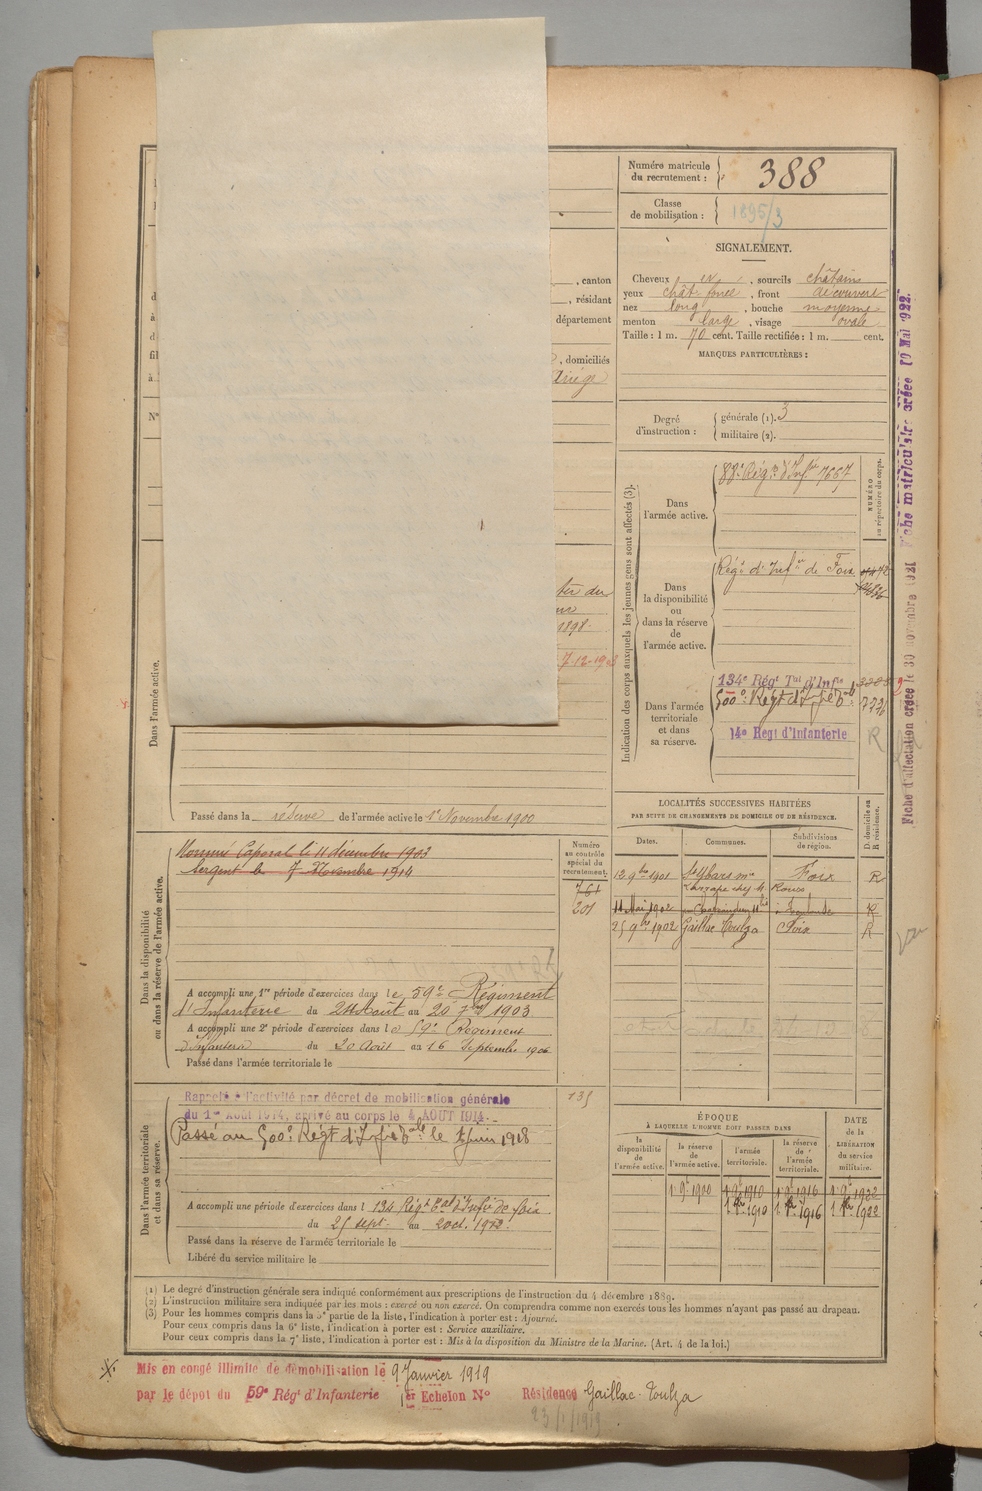 Numéro matricule
du recrutement :
388
Classe
de mobilisation :
1895/3
SIGNALEMENT.
Cheveux et , sourcils châtains
yeux chât. foncé , front découvert
nez long , bouche moyenne
menton large , visage ovale
Taille : 1 m. 70 cent. Taille rectifiée : 1 m. cent.
MARQUES PARTICULIÈRES :
, canton
, résidant
département
, domiciliés
Ariège
Degré
d'instruction :
générale (1). 3
militaire (2).
Indication des corps auxquels les jeunes gens sont affectés (3).
NUMÉRO
au répertoire du corps.
Dans
l'armée active.
88e Rég. d'Inf. 7667
Dans
la disponibilité
ou
dans la réserve
de
l'armée active.
Rég. d'Inf. de Foix
Dans l'armée
territoriale
et dans
sa réserve.
134e Régt Tal d'Infie
500e Régt d'Inf
14e Régt d'Infanterie
R
Dans l'armée active.
1898
7-12-1903
Passé dans la réserve de l'armée active le 1er Novembre 1900
Dans la disponibilité
ou dans la réserve de l'armée active.
Nommé Caporal le 11 décembre 1903
Sergent le 7 Novembre 1914
Numéro
au contrôle
spécial du
recrutement.
761
201
A accompli une 1re période d'exercices dans le 59e Régiment
d'Infanterie du 24 Août au 20 7bre 1903
A accompli une 2e période d'exercices dans le 59e Régiment
d'Infanterie du 20 Août au 16 Septembre 1906
Passé dans l'armée territoriale le
LOCALITÉS SUCCESSIVES HABITÉES
PAR SUITE DE CHANGEMENTS DE DOMICILE OU DE RÉSIDENCE.
D. domicile ou
R. résidence.
Dates.
Communes.
Subdivisions
de région.
12 9bre 1901 St Ybars Foix R
11 Mai 1902 R
25 9bre 1902 Gaillac Toulza Foix R
Dans l'armée territoriale
et dans sa réserve.
Rappelé à l'activité par décret de mobilisation générale
du 1er Août 1914, arrivé au corps le 4 AOUT 1914.
135
Passé au 500e Régt d'Inf le 1 juin 1918
A accompli une période d'exercices dans l 134 Régt d'Inf de Foix
du 25 sept. au 2 oct.
Passé dans la réserve de l'armée territoriale le
Libéré du service militaire le
ÉPOQUE
À LAQUELLE L'HOMME DOIT PASSER DANS
DATE
de la
LIBÉRATION
du service
militaire.
la
disponibilité
de
l'armée active.
la réserve
de
l'armée active.
l'armée
territoriale.
la réserve
de
l'armée
territoriale.
1 9e 1900 1 9e 1910 1 9e 1916 1 9e 1922
1910 1916 1922
(1) Le degré d'instruction générale sera indiqué conformément aux prescriptions de l'instruction du 4 décembre 1889.
(2) L'instruction militaire sera indiquée par les mots : exercé ou non exercé. On comprendra comme non exercés tous les hommes n'ayant pas passé au drapeau.
(3) Pour les hommes compris dans la 5e partie de la liste, l'indication à porter est : Ajourné.
Pour ceux compris dans la 6e liste, l'indication à porter est : Service auxiliaire.
Pour ceux compris dans la 7e liste, l'indication à porter est : Mis à la disposition du Ministre de la Marine. (Art. 4 de la loi.)
Mis en congé illimité de démobilisation le 9 Janvier 1919
par le dépot du 59e Régt d'Infanterie 1er Echelon No Résidence Gaillac-Toulza
23/1/1919
Fiche d'affectation créée le 30 novembre 1921 Fiche matriculaire créée 10 Mai 1922.